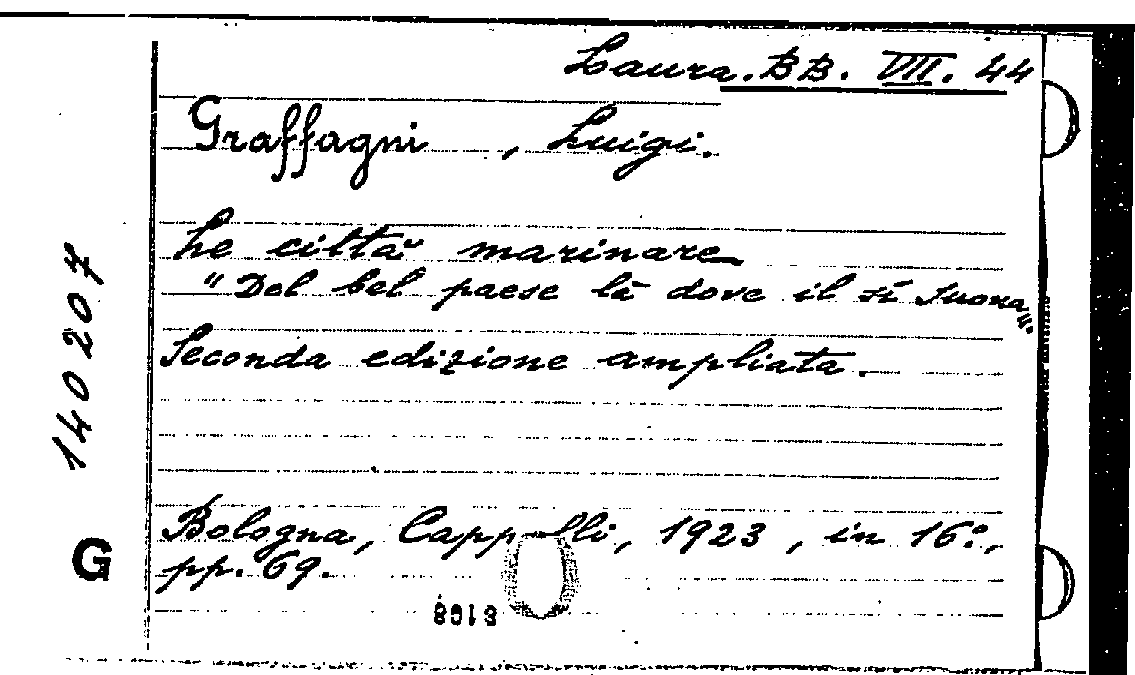 Laura. BB. VII. 44
Graffagni, Luigi.
Le città marinare
"Del bel paese là dove il sí suona".
Seconda edizione ampliata.
Bologna, Cappelli, 1923, in 16°.,
pp. 69.
140 207
G